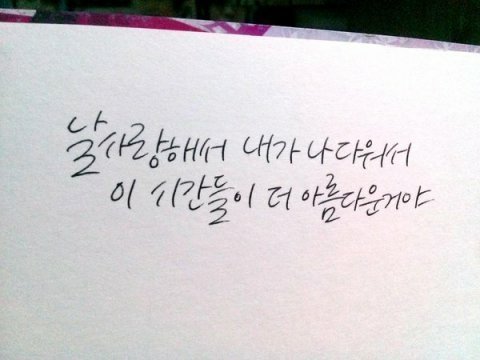 날 사랑해서 내가 나다워서
이 시간들이 더 아름다운거야